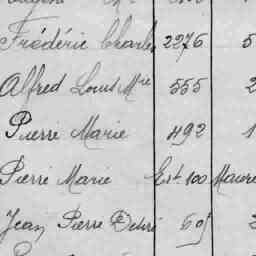 Frédéric Charles 2276 5
Alfred Louis Mie 555 2
Pierre Marie 492 1
Pierre Marie Est. 100 Mour
Jean Pierre Désiré 605